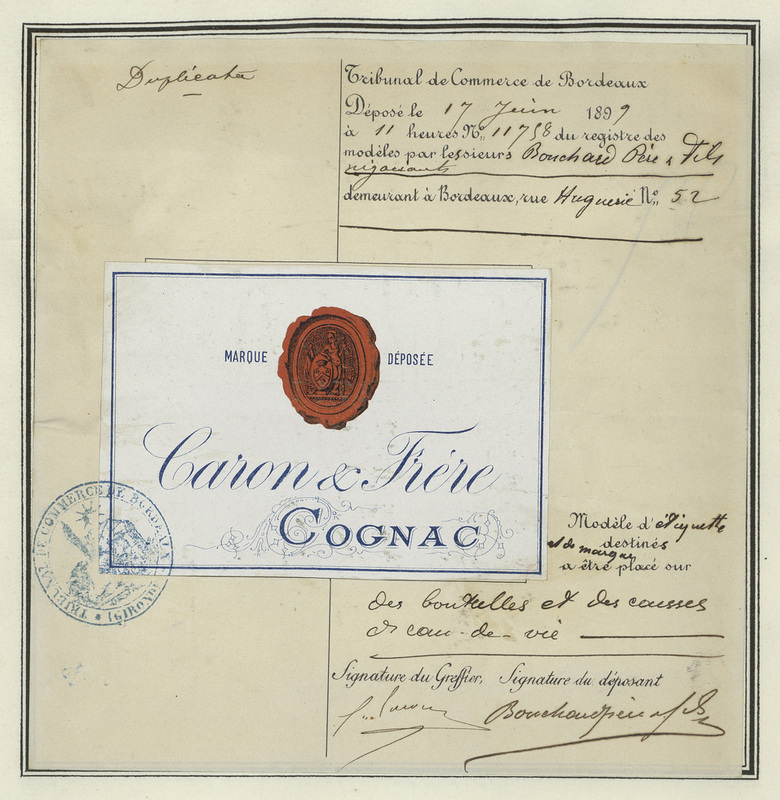 Duplicata
Tribunal de Commerce de Bordeaux
Déposé le 17 Juin 1899
à 11 heures No. 11758 du registre des
modèles par les sieurs Bouchard Père & Fils
négociants
demeurant à Bordeaux, rue Huguerie No. 52
MARQUE DÉPOSÉE
Caron & Frère
COGNAC
TRIBUNAL DE COMMERCE DE BORDEAUX
(GIRONDE)
Modèle d'étiquette
et de marque destinés
a être placé sur
des bouteilles et des caisses
d'eau-de-vie
Signature du Greffier, Signature du déposant
Bouchard père & fils